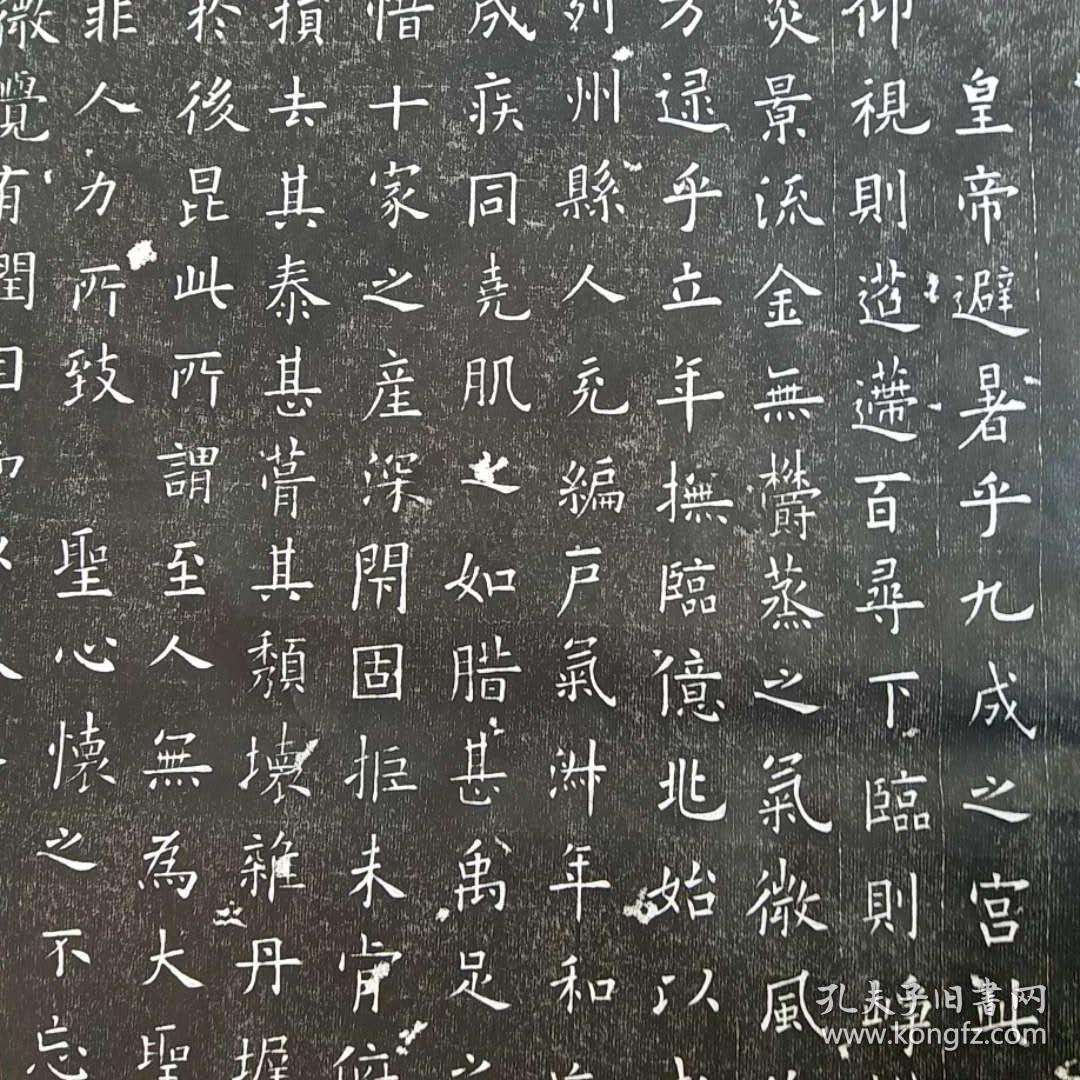 皇帝避暑乎九成之宫此
仰視則迢遰百尋下臨則崢
炎景流金無欝蒸之氣微風
方逮乎立年撫臨億兆始以
列州縣人充編戶氣淑年和
成疾同堯肌之如腊甚禹足之
惜十家之產深閇固拒未肯俯
損去其泰甚葺其頹壞雜丹墀
於後昆此所謂至人無為大聖
非人力所致聖心懷之不忘
微覺有潤因而以
孔夫子旧書网
www.kongfz.com